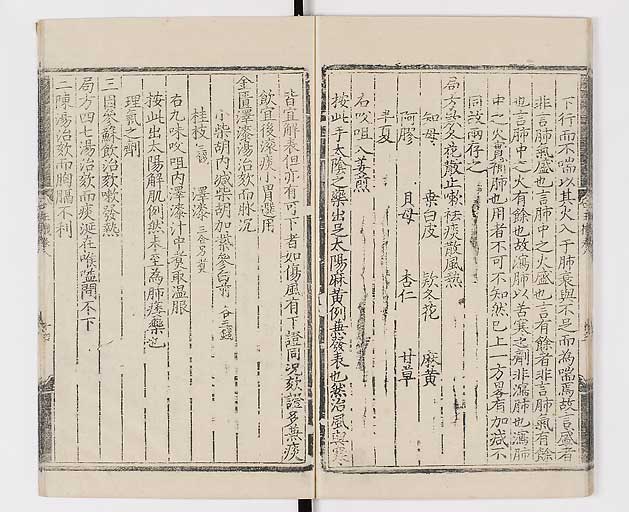 下行而不喘以其火入于肺衰與不足而為喘焉故言盛者
非言肺氣盛也言肺中之火盛也言有餘者非言肺氣有餘
也言肺中之火有餘也故瀉肺以苦寒之劑非瀉肺也瀉肺
中之火實補肺也用者不可不知然已上一方畧有加减不
同故兩存之
局方欵冬花散止嗽祛痰散風熱
知母 桑白皮 欵冬花 麻黄
阿膠 貝母 杏仁 甘草
半夏
右㕮咀入姜煎
按此手太陰之藥出足太陽麻黄例無發表也然治風與寒
皆宜解表但亦有可下者如傷風有下證同况欬證多無痰
飲宜後滾痰小胃選用
金匱澤漆湯治欬而脉沉
小柴胡内减柴胡加紫參白前各三錢
桂枝 澤漆三合方煑
右九味㕮咀内澤漆汁中煑取温服
按此出太陽解肌例然本至為肺痿藥也
理氣之劑
三因參蘇飲治欬嗽發熱
局方四七湯治欬而痰涎在喉嗌間不下
二陳湯治欬而胸膈不利